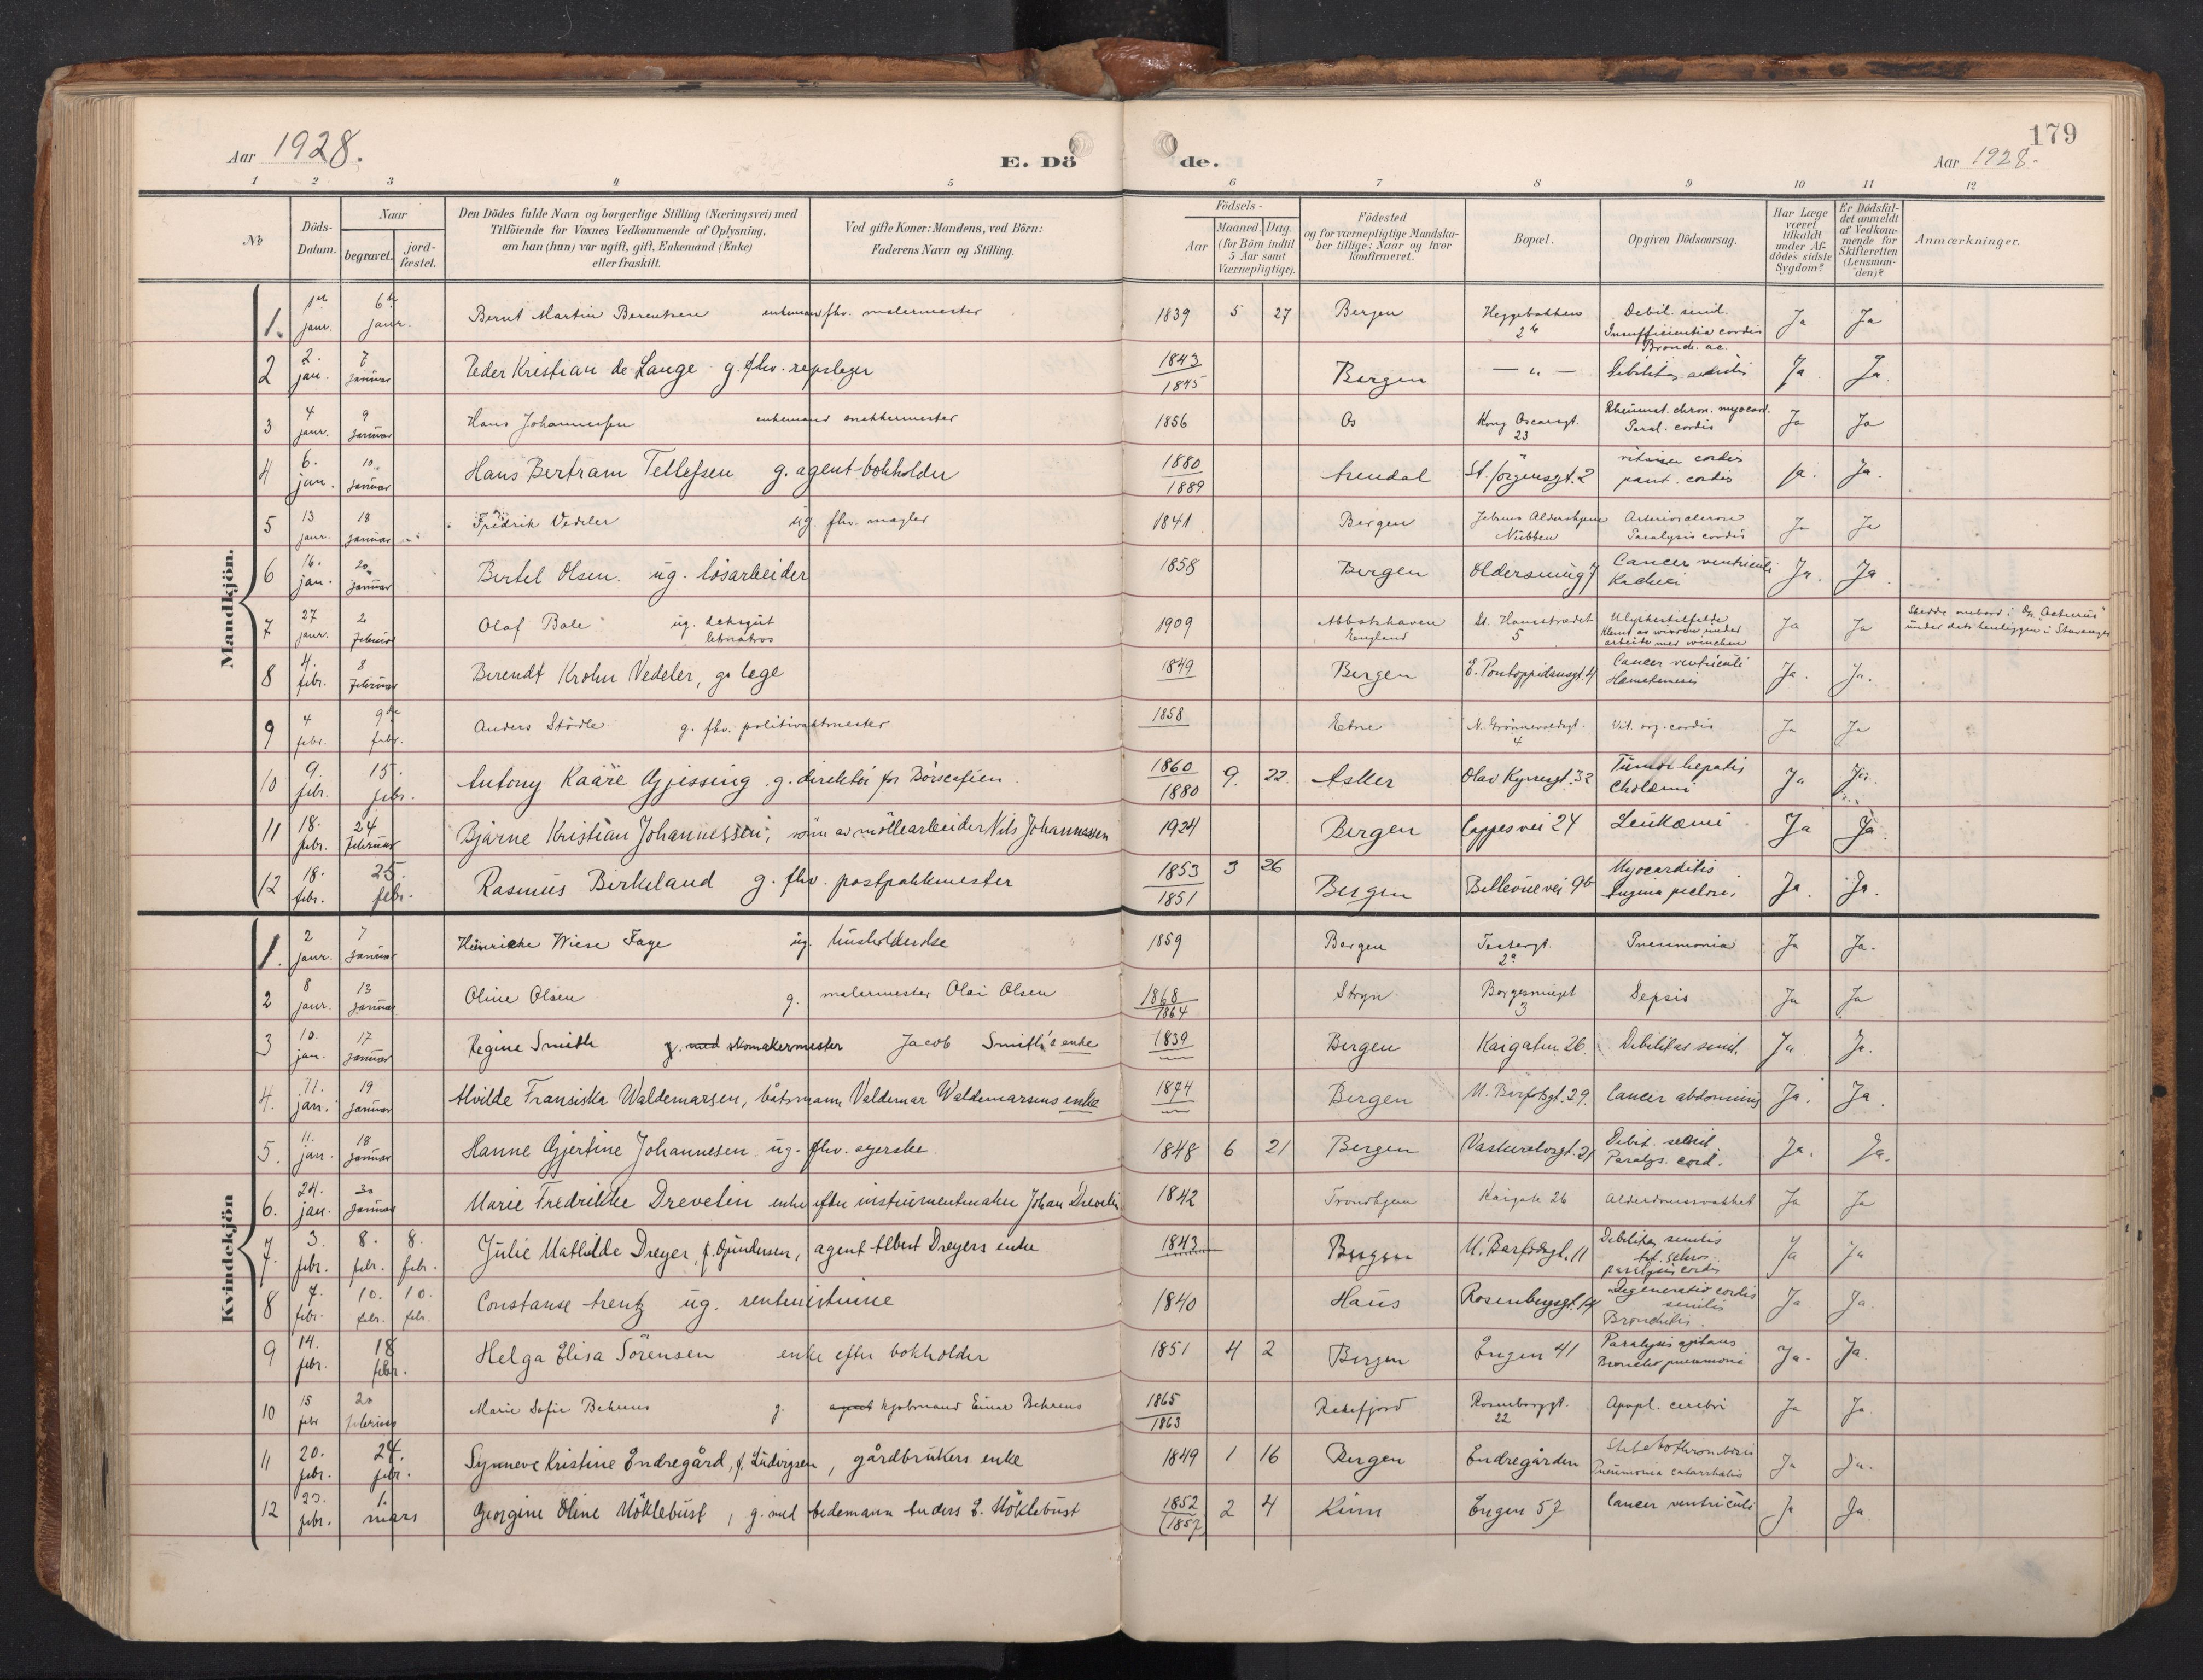 179
Aar 1928.
E. Döde.
Aar 1928.
1 2 3 4 5 6 7 8 9 10 11 12
№
Döds-Datum.
Naar
begravet.
jord-fæstet.
Den Dödes fulde Navn og borgerlige Stilling (Næringsvei) med
Tilföiende for Voxnes Vedkommende af Oplysning,
om han (hun) var ugift, gift, Enkemand (Enke)
eller fraskilt.
Ved gifte Koner: Mandens, ved Börn:
Faderens Navn og Stilling.
Födsels-
Aar
Maaned. Dag.
(for Börn indtil
5 Aar samt
Værnepligtige).
Födested
og for værnepligtige Mandska-
ber tillige: Naar og hvor
konfirmeret.
Bopæl.
Opgiven Dödsaarsag.
Har Læge
været
tilkaldt
under Af-
dödes sidste
Sygdom?
Er Dödsfal-
det anmeldt
af Vedkom-
mende for
Skifteretten
(Lensman-
den)?
Anmærkninger.
Mandkjön.
1. 1st janr. 6te janr. Bernt Martin Berentsen enkemand fhv. malermester 1839 5 27 Bergen Heggebakken 26 Debil. senil. Insufficientia cordis Bronch. ac. Ja Ja
2 2. jan. 7 januar Peder Kristian de Lange g. fhv. repslager 1843 1845 Bergen — " — Debilitas senilis Ja. Ja.
3 4 janr. 9 januar Hans Johannessen enkemand snekkermester 1856 Os Kong Oscarsgt. 23 Rheumat. chron. myocard. Paral. cordis Ja Ja
4 6. jan. 10. januar Hans Bertram Tellefsen g. agent-bokholder 1880 1889 Arendal St. Jörgensgt. 2 cordis cordis Ja. Ja.
5 13 janr. 18 januar Fredrik Vedeler ug. fhv. mægler 1841 Bergen Nubben Arteriosclerose Paralysis cordis Ja Ja
6 16. jan. 20. januar Bertel Olsen. ug. lösarbeider 1858 Bergen Oldersmug 7 Cancer ventriculi Ja. Ja.
7 27 janr. 2 februar Olaf Bale ug. dæksgut letmatros 1909 England St. Hansstrædet 5 Ulykkestilfelde Klemt av wiren under arbeide med winchen Ja Ja Skedde ombord i under dets henliggen i Stavanger
8 4. febr. 8 februar Berendt Krohn Vedeler, g. læge 1849 Bergen E. Pontoppidansgt. 4 Cancer ventriculi Hæmatemesis Ja. Ja.
9 4 febr. 9de febr. Anders Stödle g. fhv. politivaktmester 1858 Etne N. Grönnevoldsgt. 4 Vit. org. cordis Ja Ja
10 9. febr. 15. febr. Antony Kaare Gjessing g. direktör for Börscafeen 1860 1880 9. 22. Asker Olav Kyrresgt. 32 Tumor hepatis Cholæmi Ja Ja.
11 18. febr. 24 februar Bjarne Kristian Johannessen, sönn av möllearbeider Nils Johannessen 1924 Bergen Cappes vei 24 Leukæmi Ja Ja.
12 18. febr. 25. febr. Rasmus Birkeland g. fhv. postpakkmester 1853 1851 3 26 Bergen Bellevue vei 9b Myocarditis Angina pectoris Ja. Ja.
Kvindekjön
1. 2 janr. 7 januar Hinricke Wiese Faye ug. husholderske 1859 Bergen 2a Pneumonia Ja Ja.
2 8 janr. 13 januar Oline Olsen g. malermester Olai Olsen 1868 1864 Stryn 3 Sepsis Ja Ja
3 10. jan. 17 januar Regine Smith g. med skomakermester Jacob Smith's enke 1839 Bergen Kaigaten 26. Debilitas senil. Ja Ja.
4. 11. jan. 19 januar Alvilde Fransiska Waldemarsen, båtsmann Valdemar Waldemarsens enke 1874 Bergen M. Barfotsgt. 29. Cancer abdominis Ja. Ja.
5. 11. jan 18 januar Hanne Gjertine Johannesen. ug. fhv. syerske. 1848 6 21 Bergen Vaskerelvsgt. 21 Debil. senil. Paralys. cord. Ja. Ja.
6. 24. jan. 30 januar Marie Fredrikke Drevelin enke efter instrumentmaker Johan Drevelin 1842 Trondhjem Kaigate 26 Alderdomssvakhet Ja Ja
7. 3. febr. 8. febr. 8. febr. Julie Mathilde Dreyer, f. Gundersen, agent Albert Dreyers enke 1843 Bergen M. Barfodsgt. 11 Debilitas senilis paralysis cordis Ja Ja
8 7. febr. 10. febr. 10. febr. Constanse Arentz ug. rentenistinne 1840 Haus Rosenbergsgt. 14 Degeneratio cordis senilis Bronchitis. Ja Ja.
9 14. febr. 18 febr. Helga Elisa Sörensen enke efter bokholder 1851 4 2 Bergen Engen 41 Paralysis agitans Bronchopneumoni Ja. Ja.
10 15 febr 20 februar Marie Sofie Behrens g. agent kjøbmand Einar Behrens 1865 1863 Rekefjord Rosenbergsgt. 22 Apopl. cerebri Ja Ja.
11 20. febr. 24. febr. Synneve Kristine Endregård, f. Ludvigsen, gårdbrukers enke 1849 1 16 Bergen Endregården Pneumonia catarrhalis Ja Ja.
12 23. febr. 1. mars Georgine Oline Möklebust, g. med bedemann Anders E. Möklebust 1852 (1857) 2 4 Kinn Engen 57 Cancer ventriculi Ja Ja